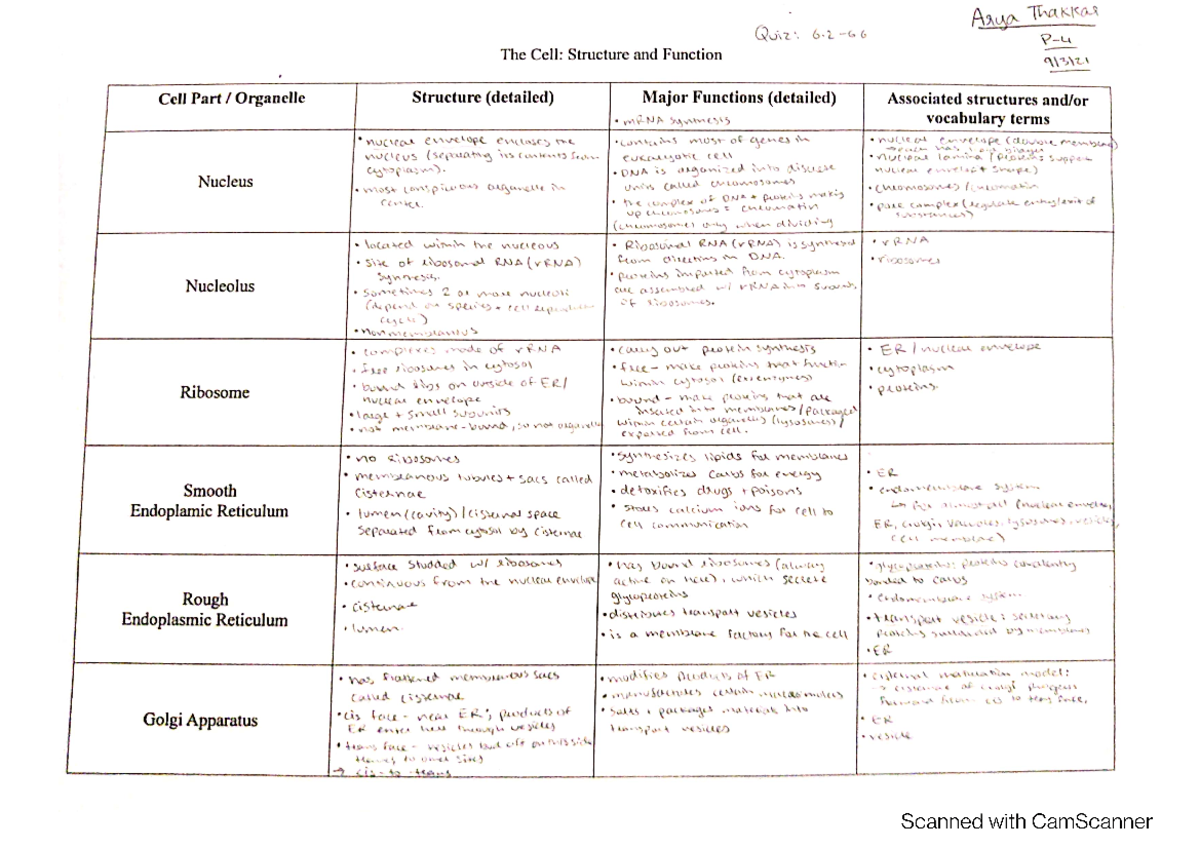 Arya Thakkar
Quiz: 6.2-6.6
P-4
9/3/21
The Cell: Structure and Function
Cell Part / Organelle
Structure (detailed)
Major Functions (detailed)
Associated structures and/or
vocabulary terms
Nucleus
• nuclear envelope encloses the
nucleus (separating its contents from
cytoplasm).
• most conspicuous organelle in
center.
• mRNA synthesis
• contains most of genes in
eukaryotic cell
• DNA is organized into discrete
units called chromosomes
• the complex of DNA + proteins making
up chromosomes = chromatin
(chromosomes only when dividing
• nuclear envelope (double membrane)
• nuclear lamina (proteins support
nuclear envelope + shape)
• chromosomes/chromatin
• pore complex (regulate entry/exit of
substances)
Nucleolus
• located within the nucleous
• site of ribosomal RNA (rRNA)
synthesis.
• sometimes 2 or more nucleoli
(depend on species + cell
cycle)
• nonmembranous
• Ribosomal RNA (rRNA) is synthesized
from directions in DNA.
• proteins imported from cytoplasm
are assembled w/ rRNA into subunits
of ribosomes.
• rRNA
• ribosomes
Ribosome
• complexes made of rRNA
• free ribosomes in cytosol
• bound ribs on outside of ER/
nuclear envelope
• large + small subunits
• not membrane-bound, so not organelle
• carry out protein synthesis
• free - make proteins that function
within cytosol (ex: enzymes)
• bound - make proteins that are
inserted into membranes/packaged
within certain organelles (lysosomes)/
exported from cell.
• ER/nuclear envelope
• cytoplasm
• proteins.
Smooth
Endoplamic Reticulum
• no ribosomes
• membranous tubules + sacs called
cisternae
• lumen (cavity)/cisternal space
separated from cytosol by cisternae
• synthesizes lipids for membranes
• metabolizes carbs for energy
• detoxifies drugs + poisons
• stores calcium ions for cell to
cell communication
• ER
• endomembrane system
(nuclear envelope,
ER, Golgi, vacuoles, lysosomes, vesicles,
cell membrane)
Rough
Endoplasmic Reticulum
• surface studded w/ ribosomes
• continuous from the nuclear envelope
• cisternae
• lumen.
• has bound ribosomes (always
active on here), which secrete
glycoproteins
• distributes transport vesicles
• is a membrane factory for the cell
• glycoproteins: proteins covalently
bonded to carbs
• endomembrane system
• transport vesicle: secretory
proteins surrounded by membranes
• ER
Golgi Apparatus
• has flattened membranous sacs
called cisternae
• cis face - near ER; products of
ER enter here through vesicles
• trans face - vesicles bud off on this side
travels to other sites
→ cis to trans
• modifies products of ER
• manufactures certain macromolecules
• sorts + packages materials into
transport vesicles
• cisternal maturation model:
→ cisternae of Golgi progress
forward from cis to trans face.
• ER
• vesicle
Scanned with CamScanner